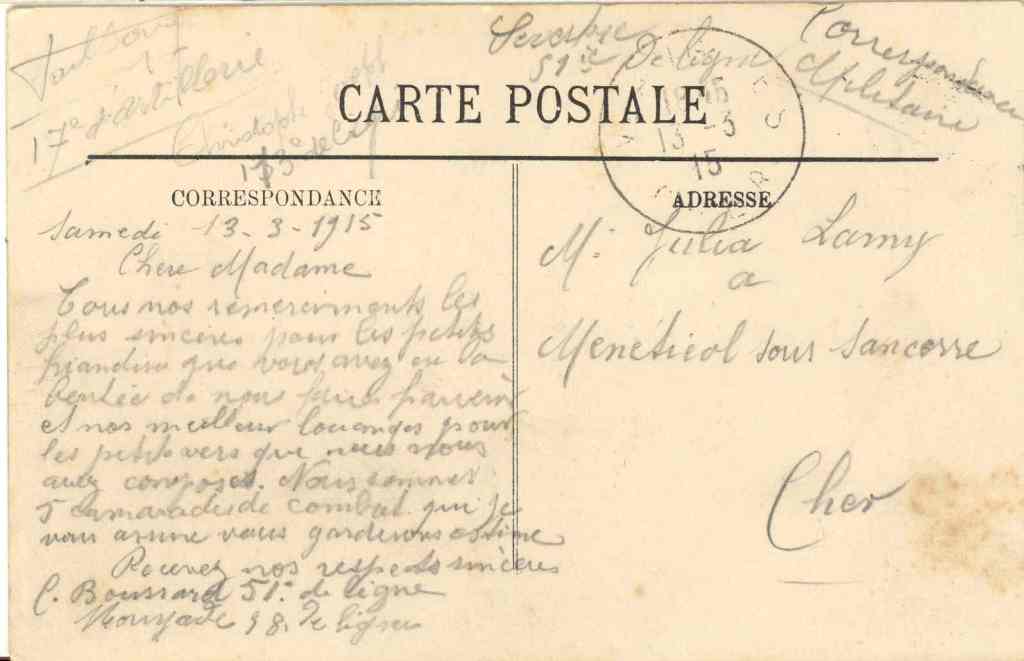 17e d'artillerie
Christophe
173e de ligne
51e De ligne
Correspondance
Militaire
CARTE POSTALE
13 -3
15
CORRESPONDANCE
ADRESSE
Samedi 13-3-1915
Chere Madame
Tous nos remerciments les
plus sincères pour les petites
friandises que vous avez eu la
bontée de nous faire parvenir
et nos meilleur louanges pour
les petits vers que vous nous
avez composés. Nous sommes
5 camarades de combat qui je
vous assure vous garderons estime
Recevez nos respects sincères
C. Boussard 51e de ligne
98. De ligne
M. Julia Lamy
a
Menétréol sous Sancerre
Cher